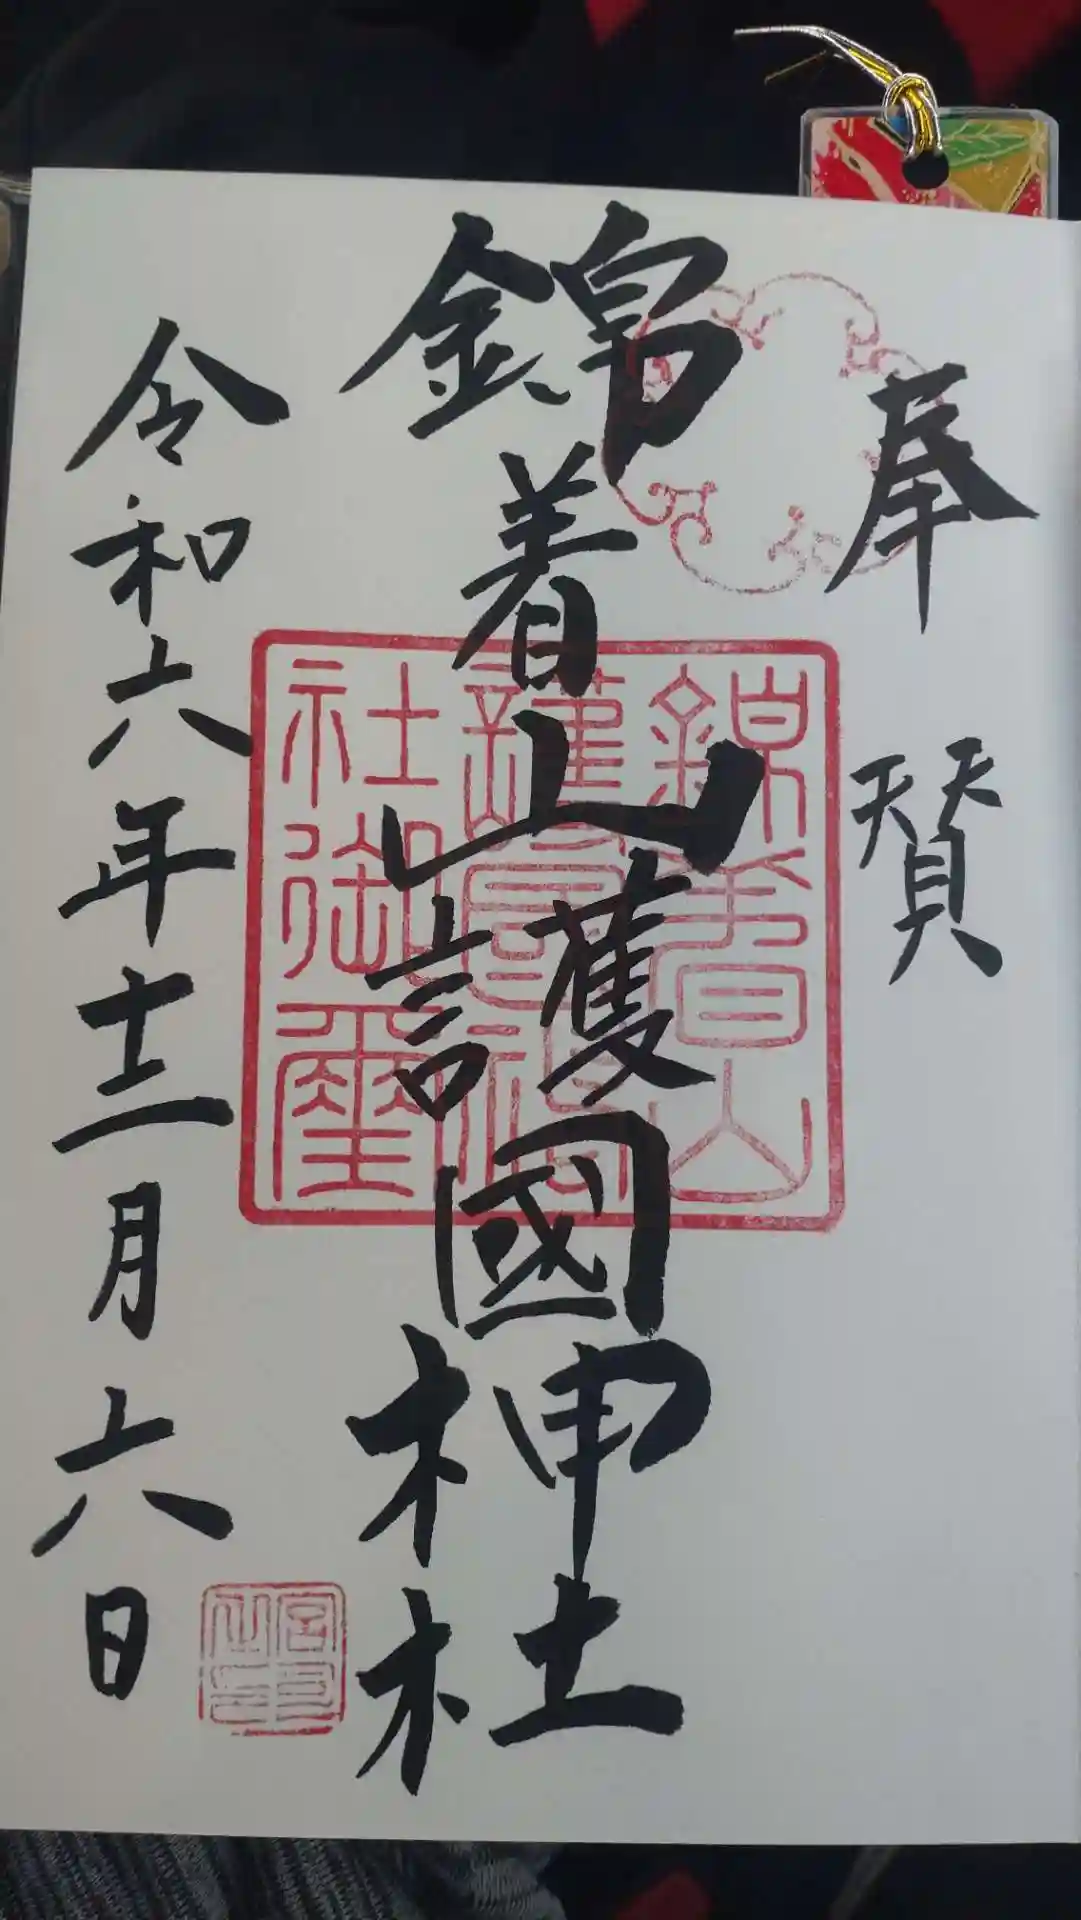 奉賛
錦着山護國神社
令和六年十二月六日
錦着山
護國神
社御璽
宮司
之印